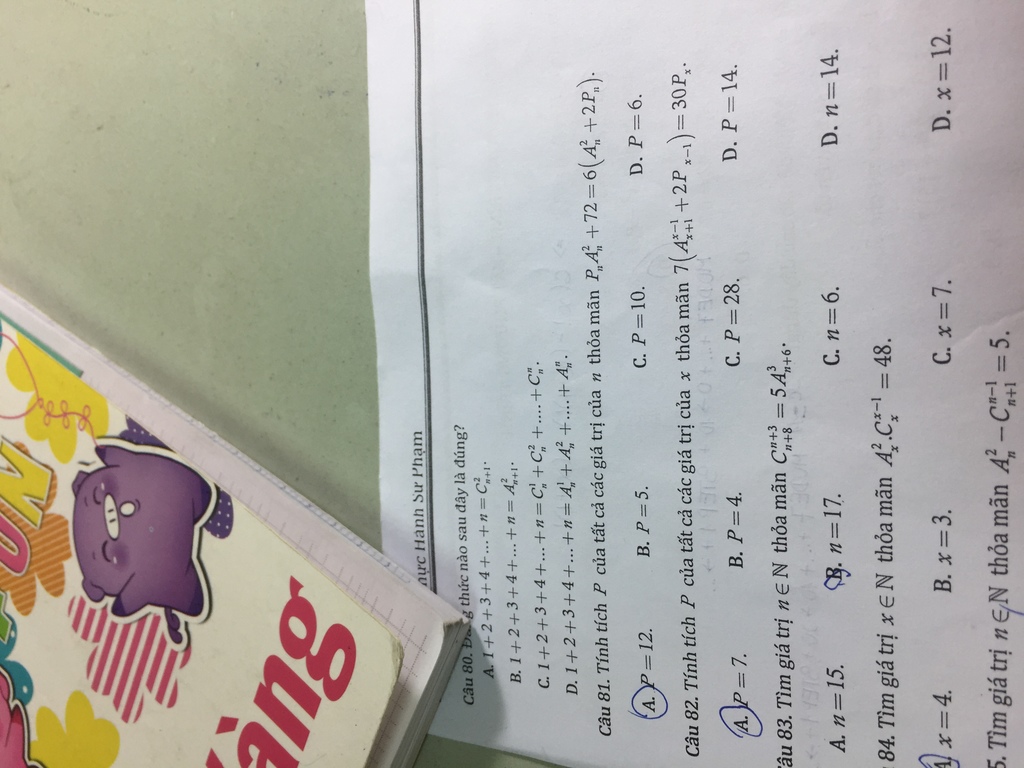 Hành Sư Phạm
Câu 80. thức nào sau đây là đúng?
A. 1+2+3+4+...+n = C²ₙ₊₁.
B. 1+2+3+4+...+n = A²ₙ₊₁.
C. 1+2+3+4+...+n = C¹ₙ + C²ₙ + ..... + Cⁿₙ.
D. 1+2+3+4+...+n = A¹ₙ + A²ₙ + ..... + Aⁿₙ.
Câu 81. Tính tích P của tất cả các giá trị của n thỏa mãn PₙA²ₙ + 72 = 6(A²ₙ + 2Pₙ).
A. P = 12. B. P = 5. C. P = 10. D. P = 6.
Câu 82. Tính tích P của tất cả các giá trị của x thỏa mãn 7(Aˣ⁻¹ₓ₊₁ + 2Pₓ₋₁) = 30Pₓ.
A. P = 7. B. P = 4. C. P = 28. D. P = 14.
Câu 83. Tìm giá trị n ∈ ℕ thỏa mãn Cⁿ⁺³ₙ₊₈ = 5A³ₙ₊₆.
A. n = 15. B. n = 17. C. n = 6. D. n = 14.
84. Tìm giá trị x ∈ ℕ thỏa mãn A²ₓ.Cˣ⁻¹ₓ = 48.
A. x = 4. B. x = 3. C. x = 7. D. x = 12.
5. Tìm giá trị n ∈ ℕ thỏa mãn A²ₙ − Cⁿ⁻¹ₙ₊₁ = 5.
àng